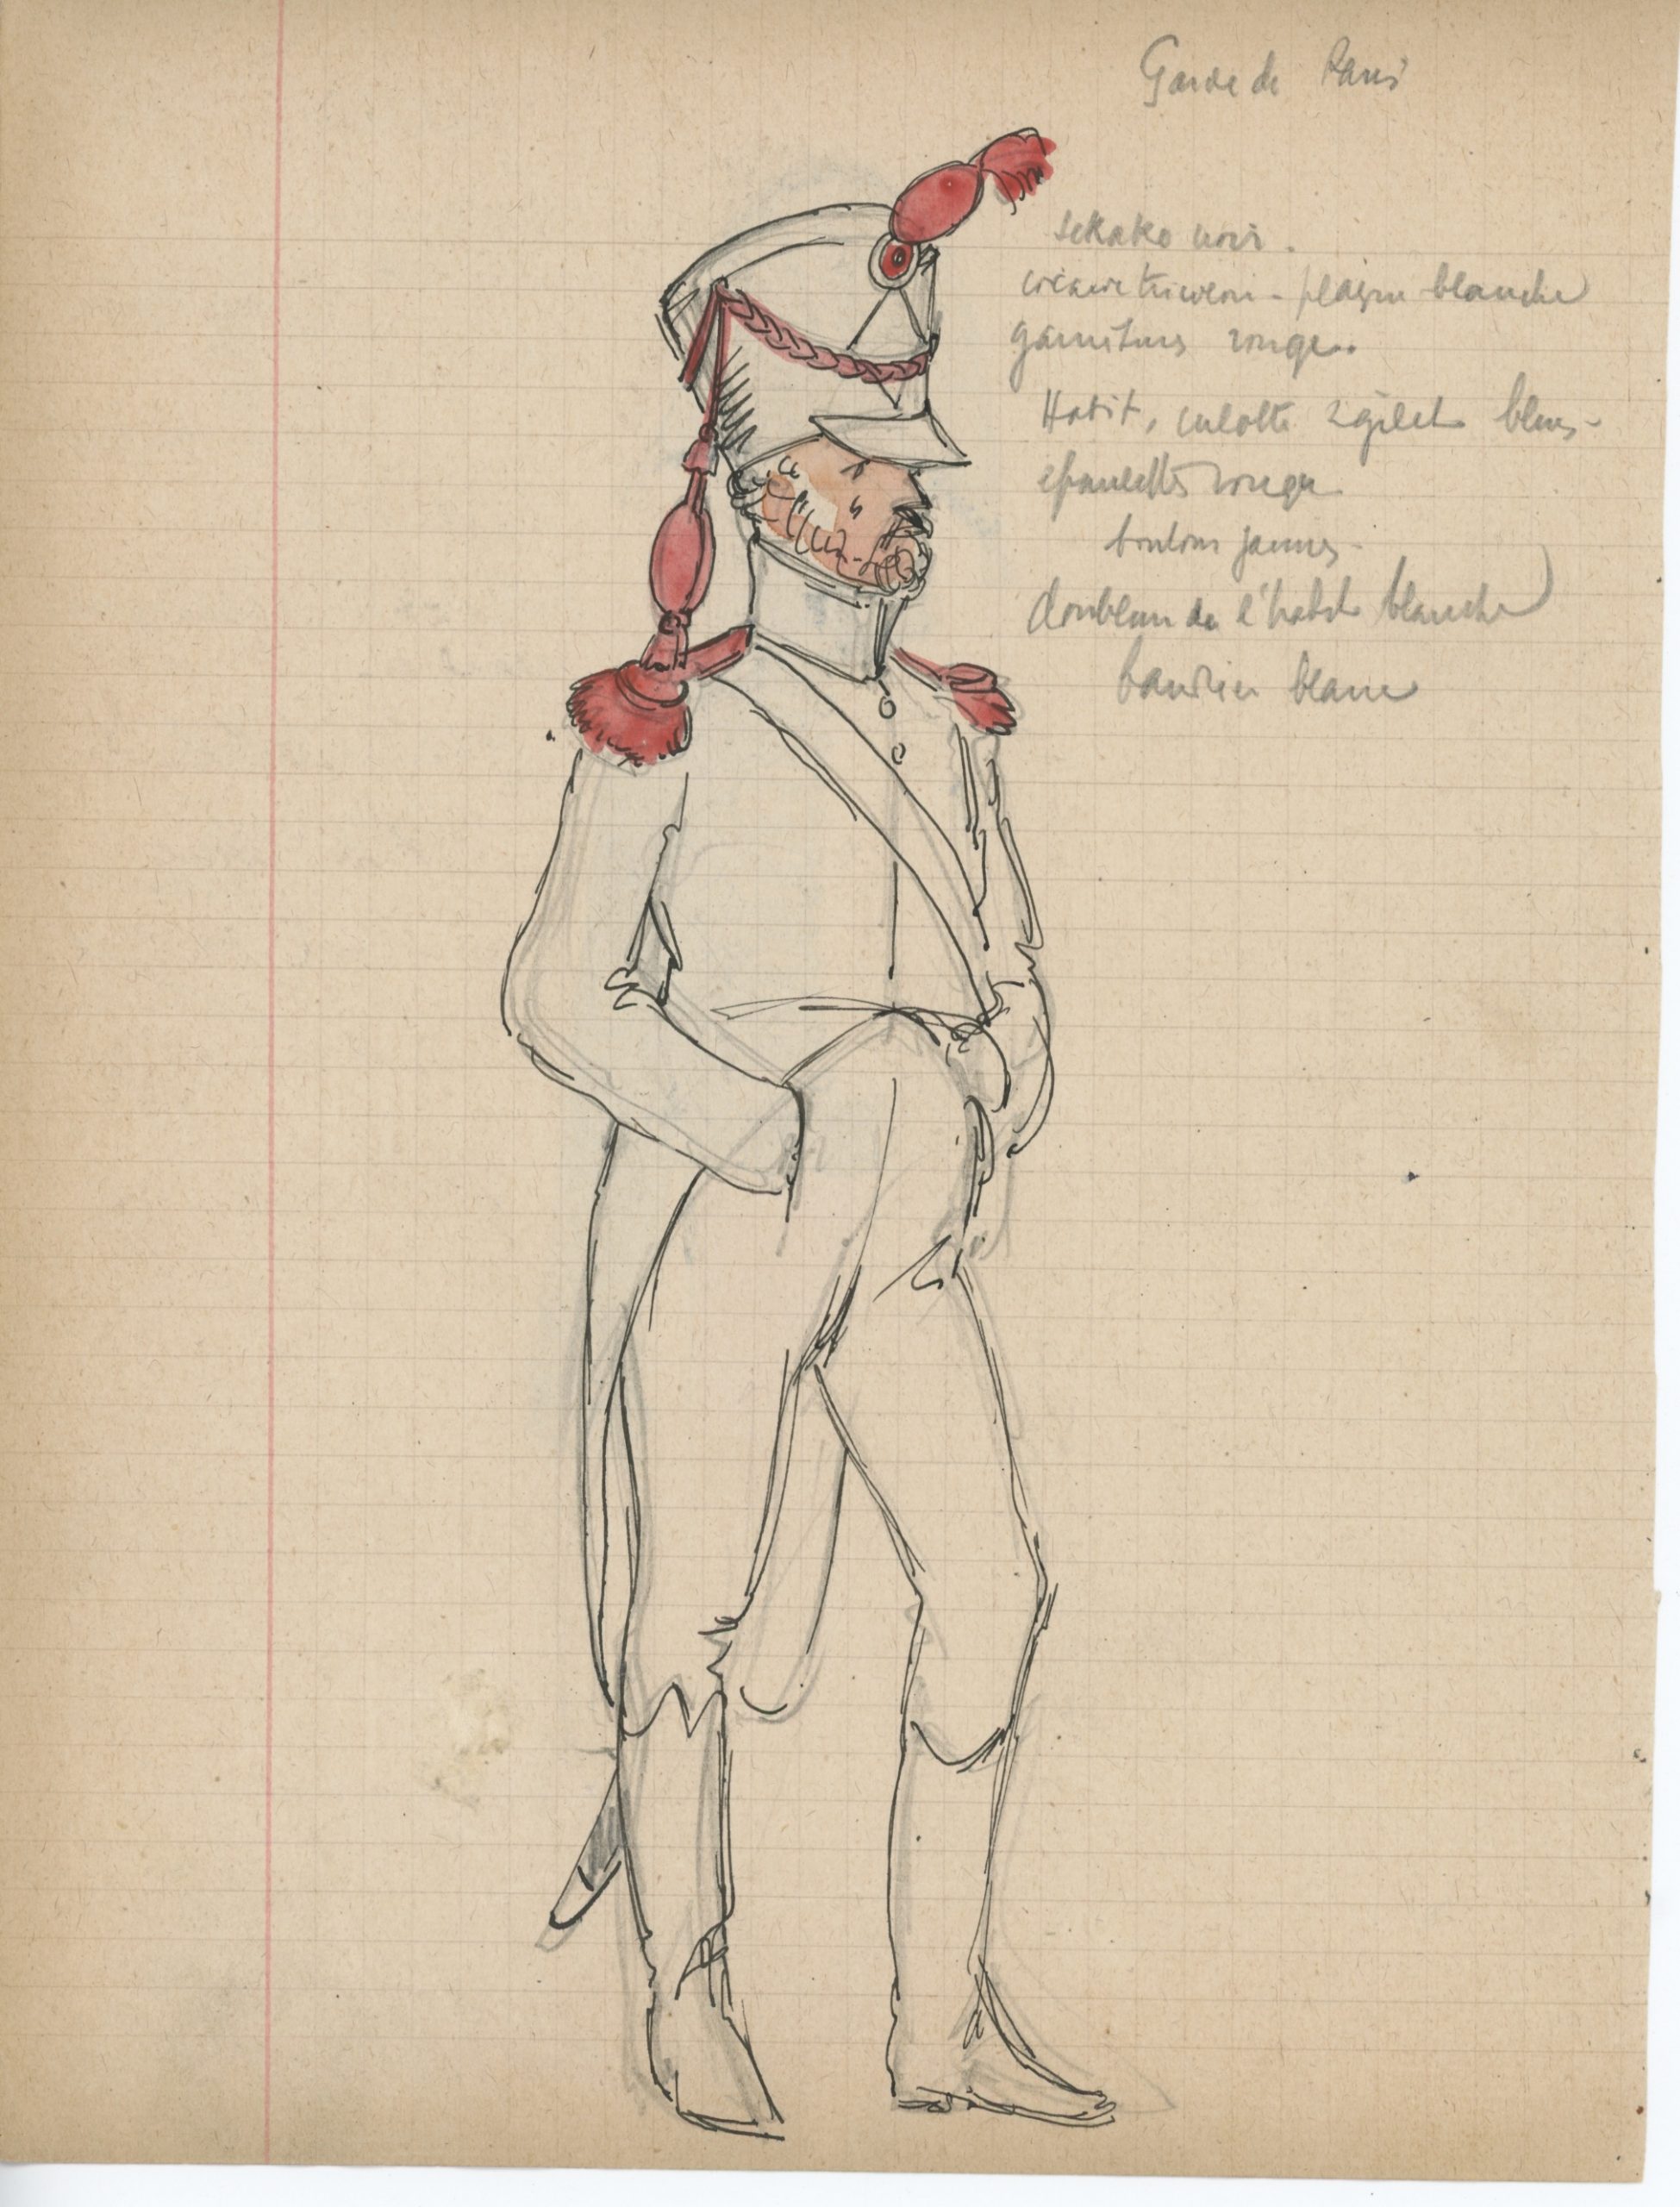 Garde de Paris
schako noir.
cocarde tricolore - plaque blanche
garnitures rouge.
Habit, culotte & gilet bleus -
épaulettes rouges
boutons jaunes -
doublure de l'habit blanche
baudrier blanc